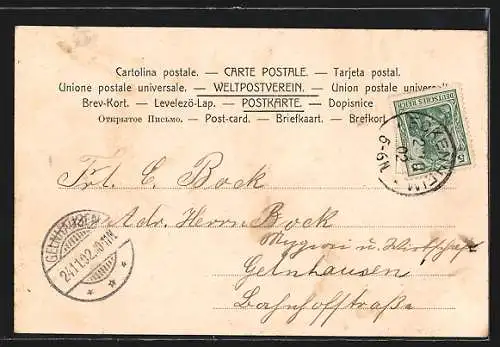 Cartolina postale. — CARTE POSTALE. — Tarjeta postal.
Unione postale universale. — WELTPOSTVEREIN. — Union postale universelle
Brev-Kort. — Levelezö-Lap. — POSTKARTE. — Dopisnice
Открытое Письмо. — Post-card. — Briefkaart. — Brefkort
DEUTSCHES REICH
5
5-6N.
Frl. E. Bock
Adr. Herrn Bock
u. Wirtschaft
Gelnhausen
Bahnhofstraße
GELNHAUSEN
24.11.02.